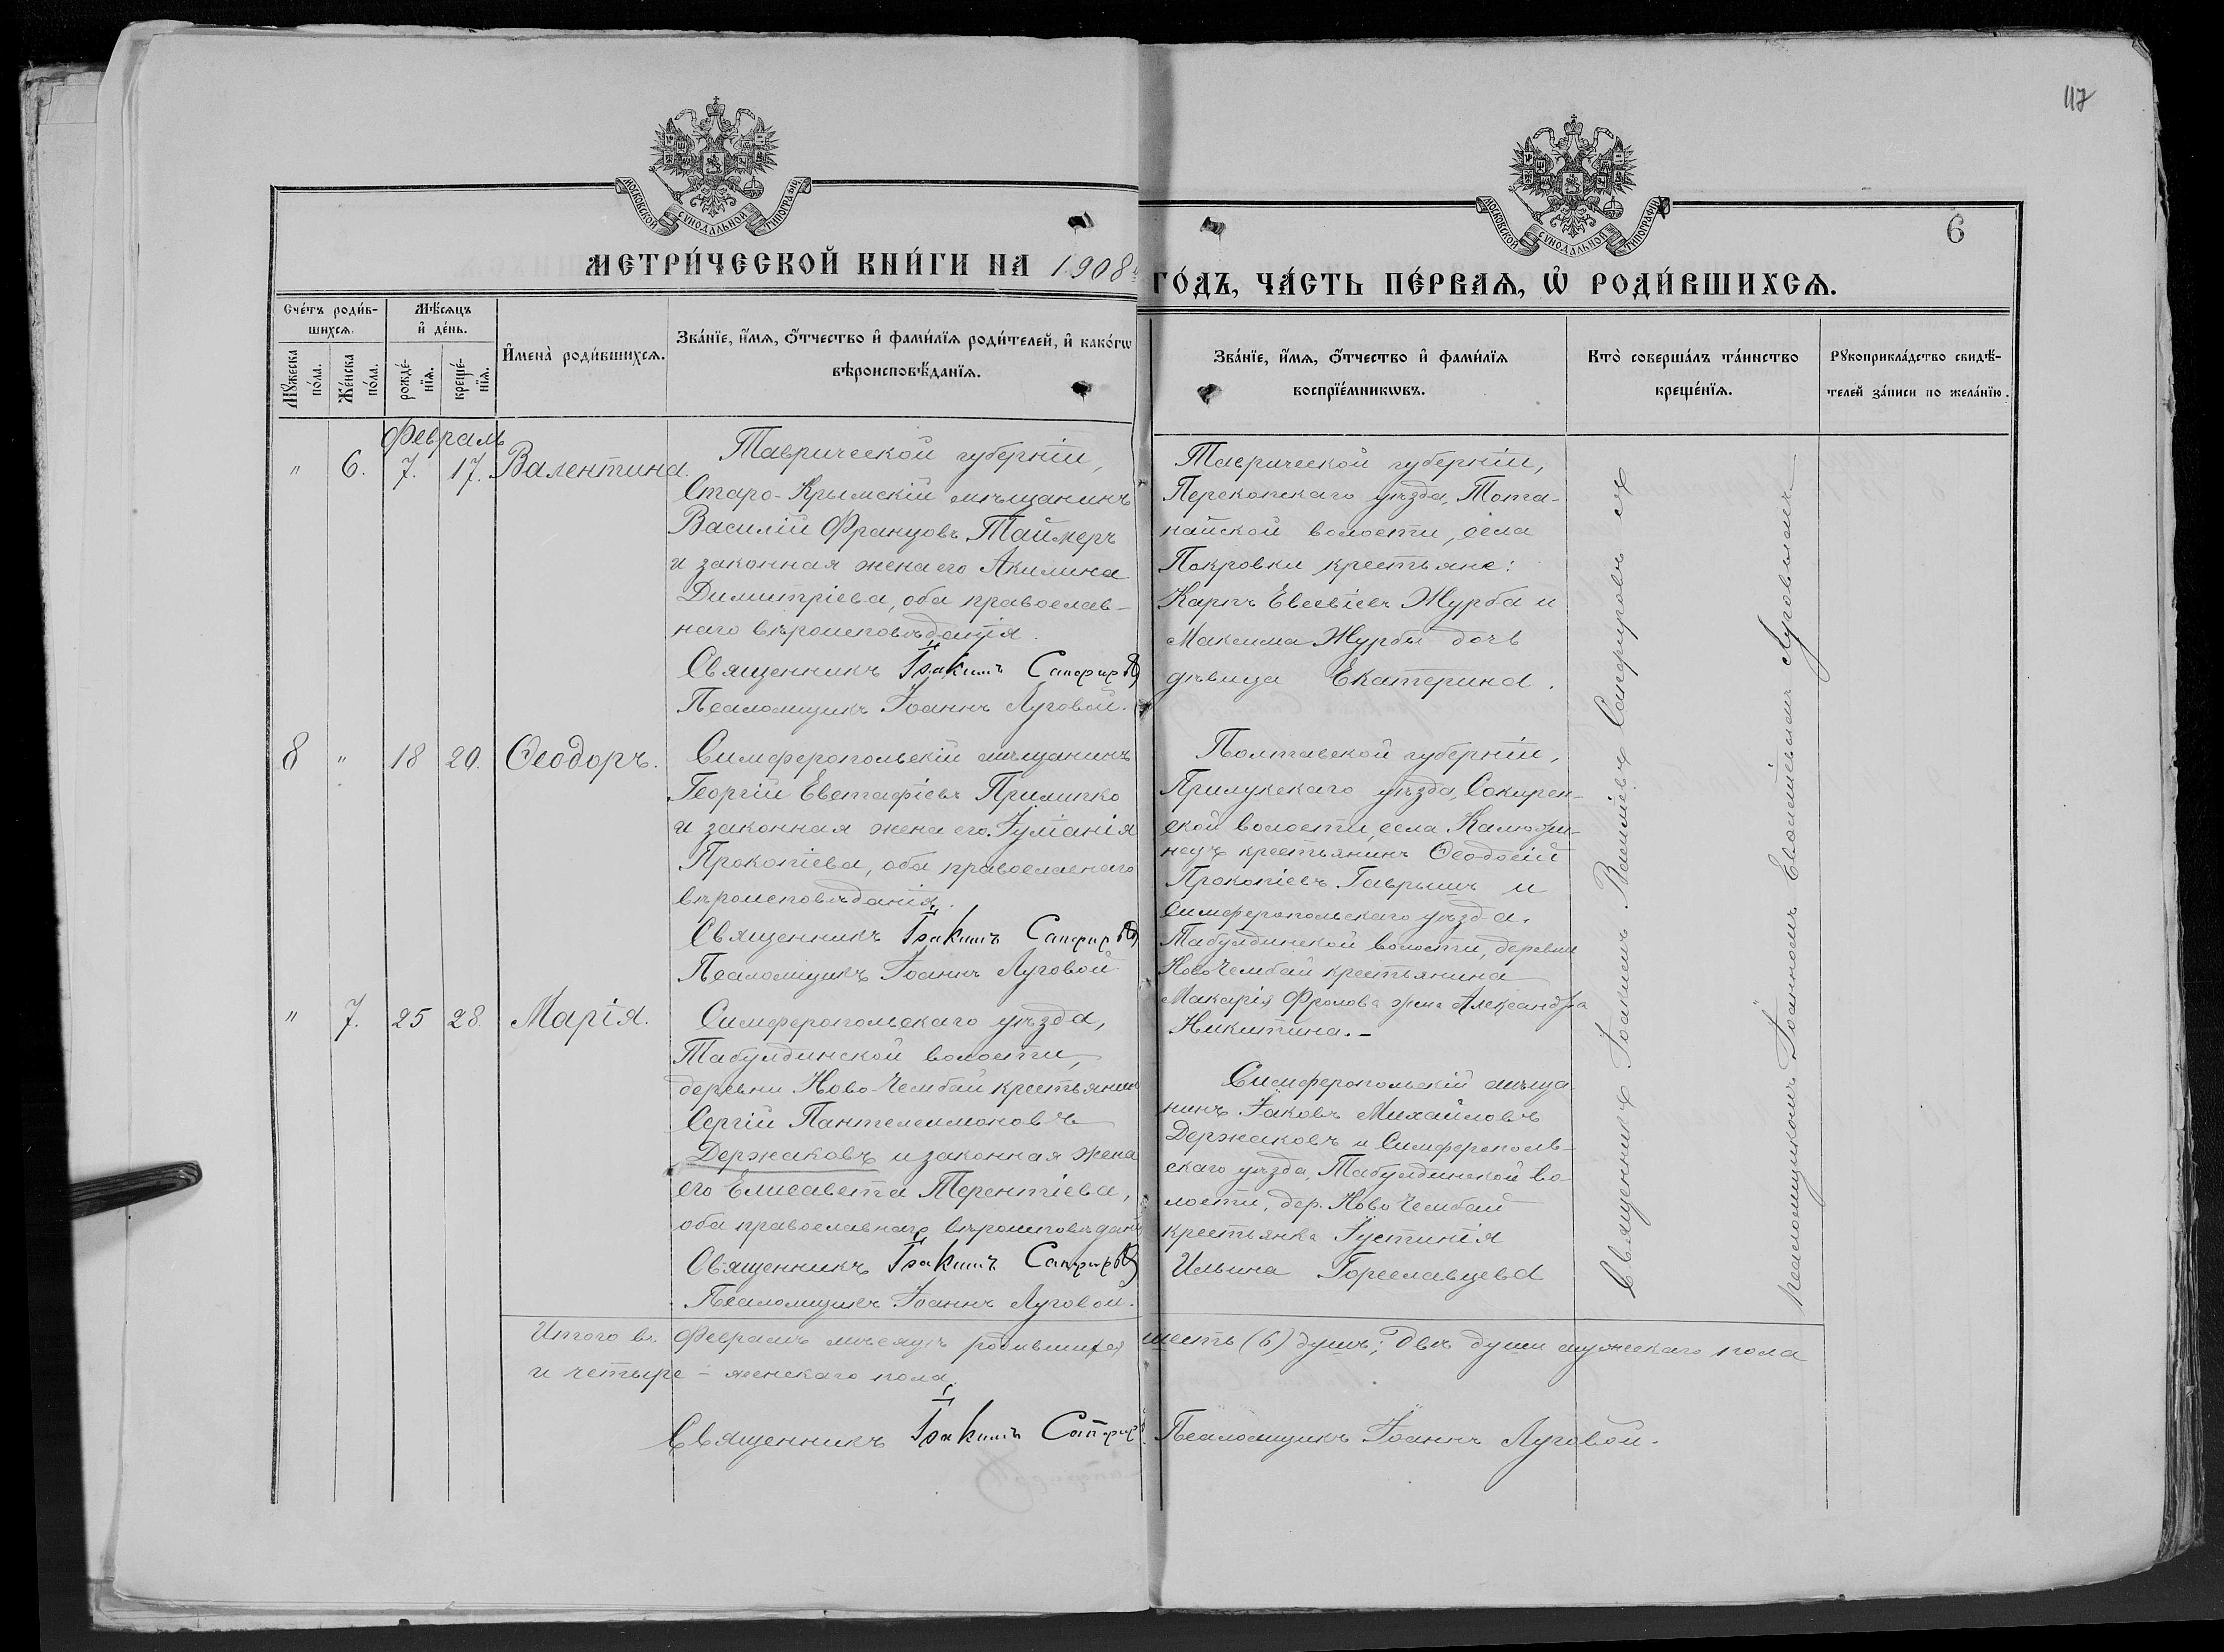 117
МОСКОВСКОЙ СУНОДАЛЬНОЙ ТИПОГРАФІИ
МОСКОВСКОЙ СУНОДАЛЬНОЙ ТИПОГРАФІИ
6
МЕТРИ́ЧЕСКОЙ КНИ́ГИ НА 1908
ГО́ДЪ, ЧА́СТЬ ПЕ́РВАѦ, Ѡ҆ РОДИ́ВШИХСѦ.
Сче́тъ роди́в-
шихсѧ.
Мѣ́сѧцъ
и҆ де́нь.
Мꙋ́жеска
по́ла.
Же́нска
по́ла.
рожде́-
нїѧ.
креще́-
нїѧ.
И҆мена̀ роди́вшихсѧ.
Зва́нїе, и҆́мѧ, ѻ҆́тчество и҆ фами́лїѧ роди́телей, и҆ како́гѡ
вѣроисповѣ́данїѧ.
Зва́нїе, и҆́мѧ, ѻ҆́тчество и҆ фами́лїѧ
воспрїе́мникѡвъ.
Кто̀ соверша́лъ та́инство
креще́нїѧ.
Рꙋкоприкла́дство свидѣ́-
телей за́писи по жела́нїю.
Февраль
" 6. 7. 17. Валентина.
Таврической губерніи,
Старо-Крымскій мѣщанинъ
Василій Францовъ Таймеръ
и законная жена его Акилина
Димитріева, оба православ-
наго вѣроисповѣданія.
Священникъ Іоакимъ Сапфировъ
Псаломщикъ Іоаннъ Луговой.
Таврической губерніи,
Перекопскаго уѣзда, Тота-
найской волости, села
Покровки крестьяне:
Карпъ Евсевіевъ Журба и
Максима Журбы дочь
дѣвица Екатерина.
8 " 18 20. Ѳеодоръ.
Симферопольскій мѣщанинъ
Георгій Евстафіевъ Прилипко
и законная жена его Іуліанія
Прокопіева, оба православнаго
вѣроисповѣданія.
Священникъ Іоакимъ Сапфировъ
Псаломщикъ Іоаннъ Луговой
Полтавской губерніи,
Прилукскаго уѣзда, Сокирен-
ской волости, села
крестьянинъ Ѳеодосій
Прокопіевъ Гаврышъ и
Симферопольскаго уѣзда.
Табулдинской волости, деревни
Ново Чембай крестьянина
Макарія Фролова жена Александра
Никитина.-
" 7. 25 28. Марія.
Симферопольскаго уѣзда,
Табулдинской волости,
деревни Ново-Чембай крестьянинъ
Сергій Пантелеимоновъ
Держаковъ и законная жена
его Елисавета Терентіева,
оба православнаго вѣроисповѣданія
Священникъ Іоакимъ Сапфировъ
Псаломщикъ Іоаннъ Луговой.
Симферопольскій мѣща-
нинъ Іаковъ Михайловъ
Держаковъ и Симферополь-
скаго уѣзда, Табулдинской во-
лости, дер. Ново Чембай
крестьянка Іустинія
Ильина Гореславцева
Священникъ Іоакимъ Васильевъ Сапфировъ съ
псаломщикомъ Іоанномъ Евсигнѣевымъ Луговымъ
Итого въ Февралѣ мѣсяцѣ родившихся шесть (6) душъ; двѣ души мужескаго пола
и четыре - женскаго пола.
Священникъ Іоакимъ Сапфировъ Псаломщикъ Іоаннъ Луговой.